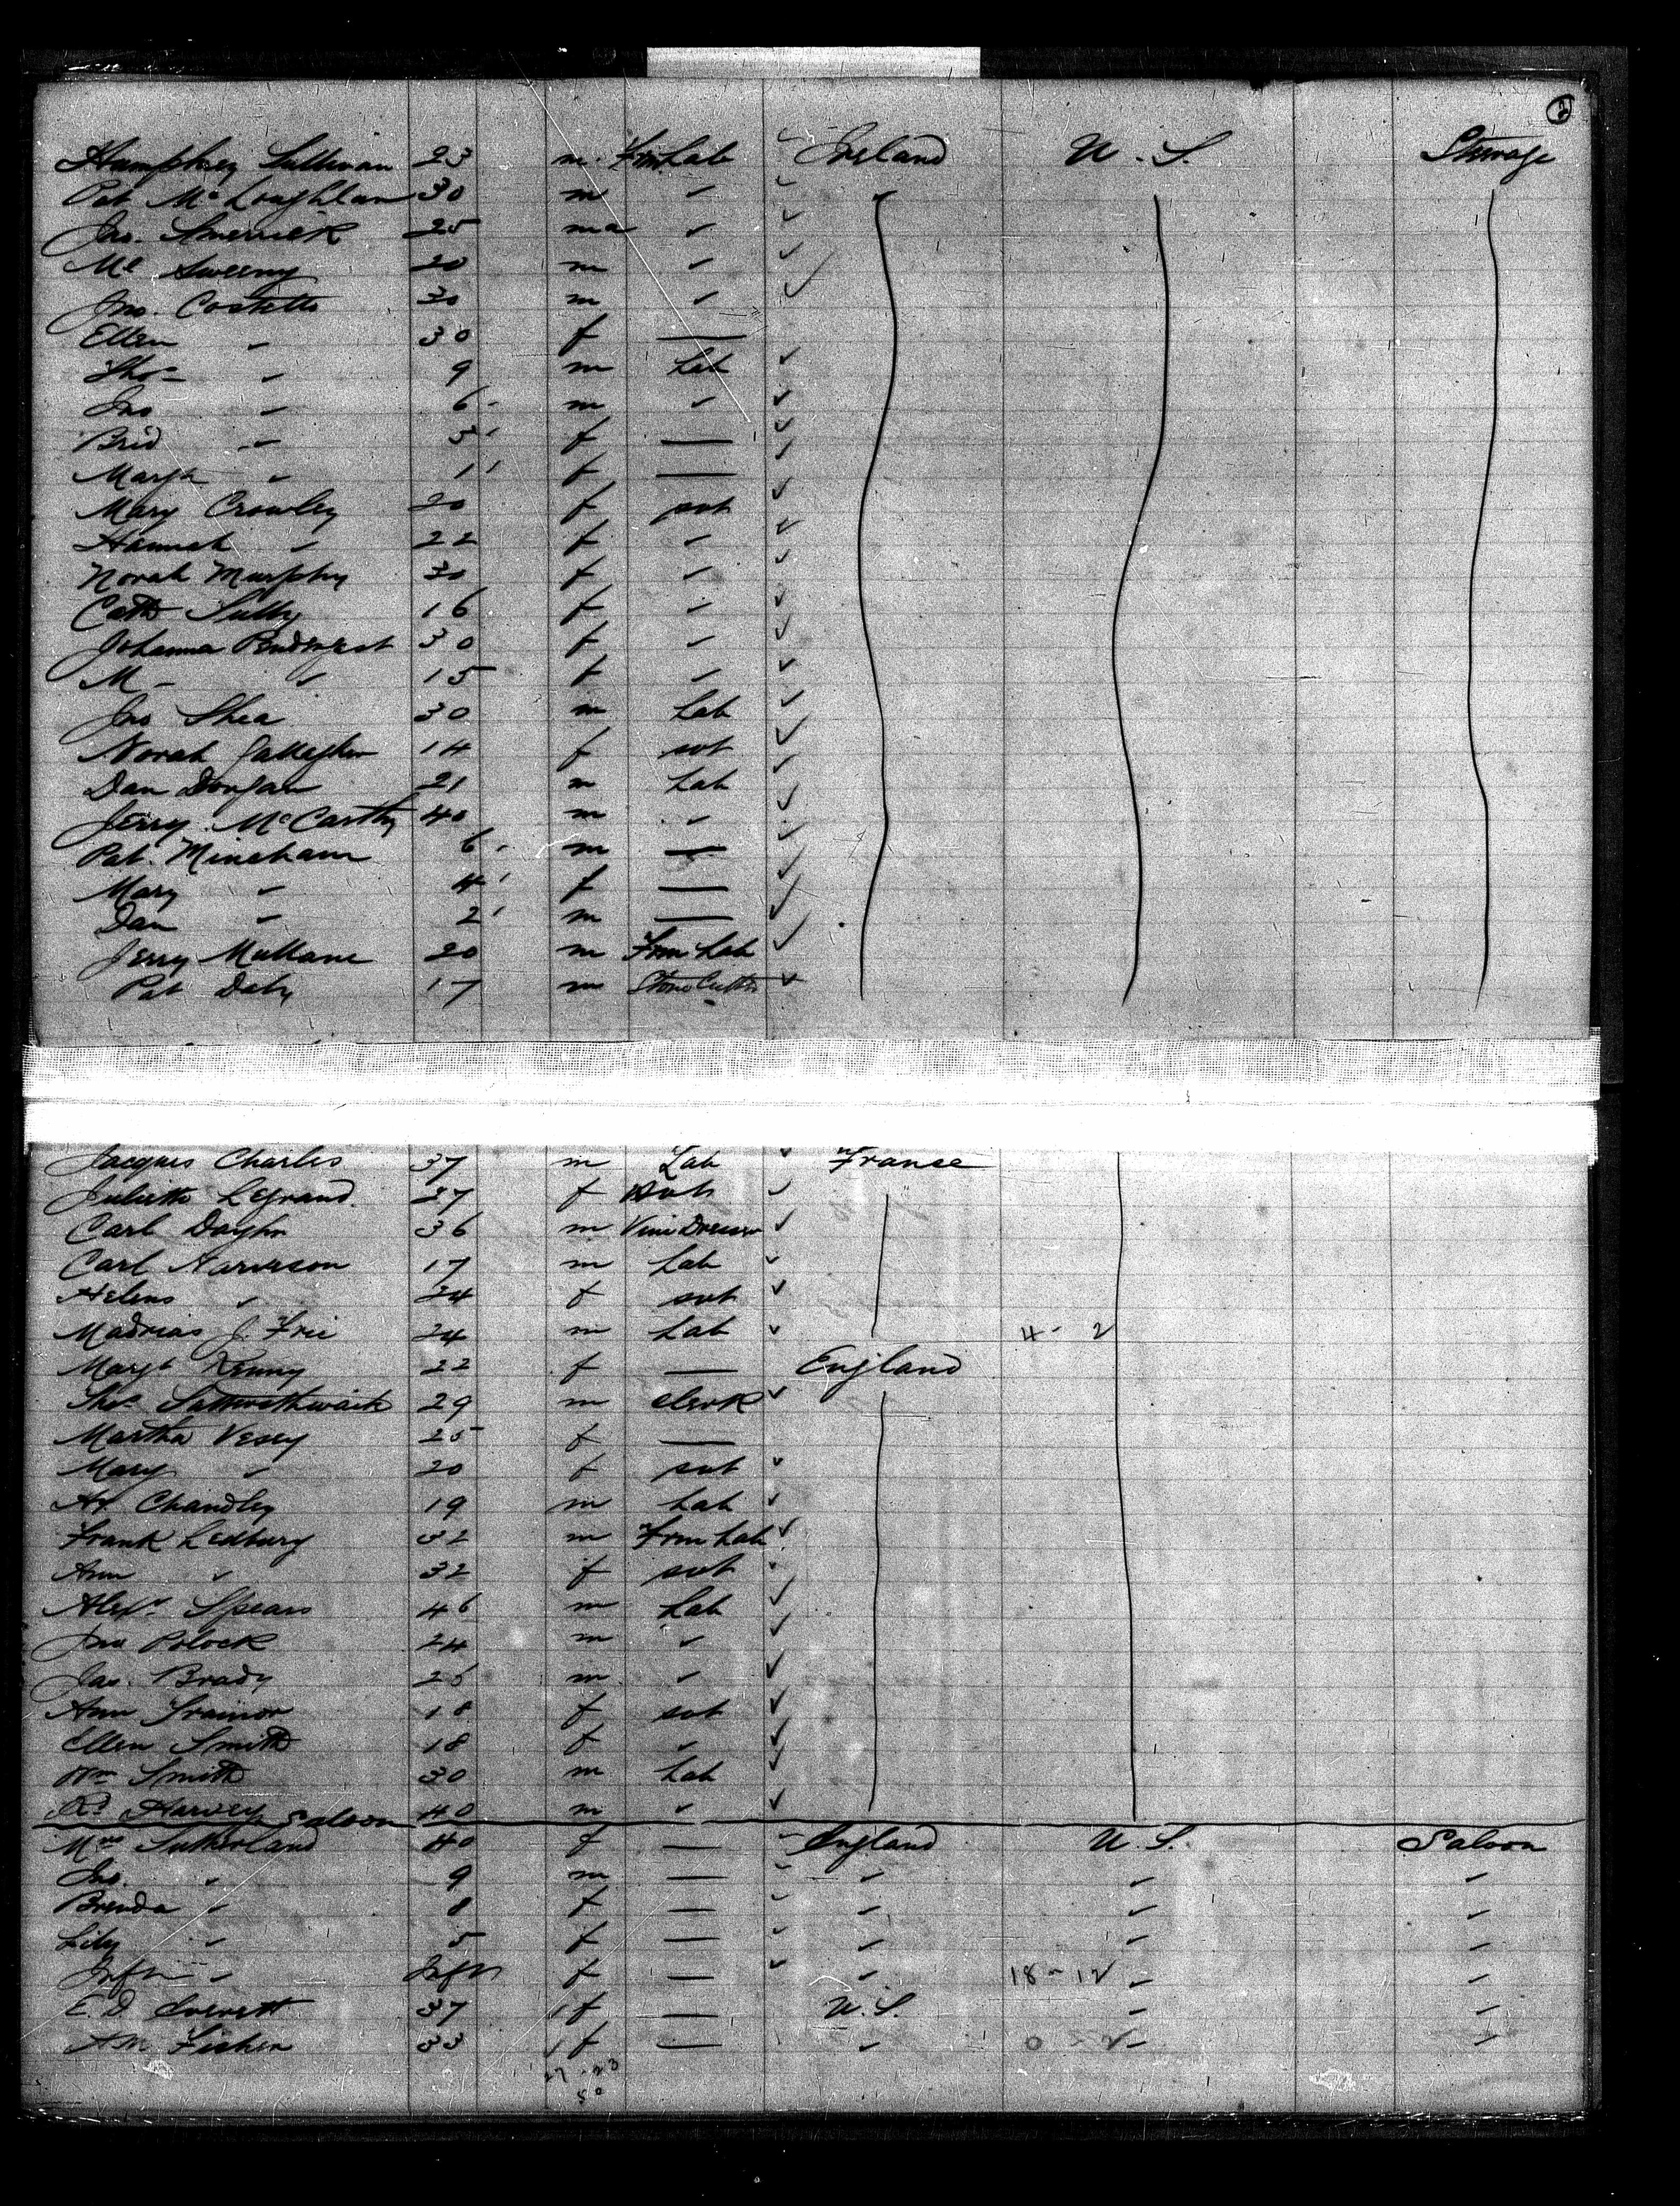 2
Humphrey Sullivan 23 m. Fm Lab ✓ Ireland U.S. Steerage
Pat McLoughlan 30 m ✓ ✓
Jno. Smerrick 25 ma ✓ ✓
Ml Sweeny 20 m ✓ ✓
Jno. Costello 30 m ✓ ✓
Ellen ✓ 30 f —
Thos ✓ 9 m Lab ✓
Jno ✓ 6 m ✓ ✓
Brid ✓ 5 f — ✓
Margt ✓ 1 f — ✓
Mary Crowley 20 f svt ✓
Hannah ✓ 22 f ✓ ✓
Norah Murphy 30 f ✓ ✓
Cath Sully 16 f ✓ ✓
Johanna 30 f ✓ ✓
M ✓ 15 f ✓ ✓
Jno Shea 30 m Lab ✓
Norah Gallagher 14 f svt ✓
Dan Dongan 21 m Lab ✓
Jerry McCarthy 40 m ✓ ✓
Pat. Minaham 6 m — ✓
Mary ✓ 4 f — ✓
Dan ✓ 2 m — ✓
Jerry Mullane 20 m Fm Lab ✓
Pat Daly 17 m Stone Cutter ✓
Jacques Charles 37 m Lab ✓ France
Juliette Legrand. 27 f svt ✓
Carl 36 m Vine Dresser ✓
Carl Narveson 17 m Lab ✓
Helens ✓ 24 f svt ✓
Madrias J. Frie 24 m Lab ✓ 4 - 2
Margt Kenny 22 f — England
Thos Satterthwaite 29 m clerk ✓
Martha Vesey 25 f —
Mary ✓ 20 f svt ✓
Chandley 19 m Lab ✓
Frank Ledbury 32 m Fm Lab ✓
Ann ✓ 32 f svt ✓
Alexr Spears 46 m Lab ✓
Jno Polock 24 m ✓ ✓
Jas. Brady 25 m ✓ ✓
Ann Trainor 18 f svt ✓
Ellen Smith 18 f ✓ ✓
Wm Smith 30 m Lab ✓
Rd Harvey 40 m ✓ ✓
Saloon
Mrs Sutherland 40 f — England U.S. Saloon
Jno. ✓ 9 m — ✓ ✓ ✓
Brenda ✓ 8 f — ✓ ✓ ✓
Lily ✓ 5 f — ✓ ✓ ✓
Infn ✓ Infn f — ✓ 18 - 12 ✓ ✓
E. D. Everett 37 f — U.S. ✓ ✓
AM Fisher 33 f — ✓ ✓ ✓
27 - 23
50